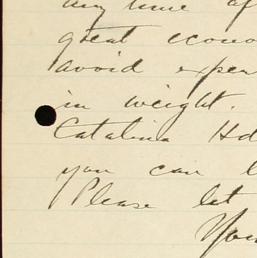 any time af
great econo
avoid exper
in weight.
Catalina Hd
you can l
Please let
You